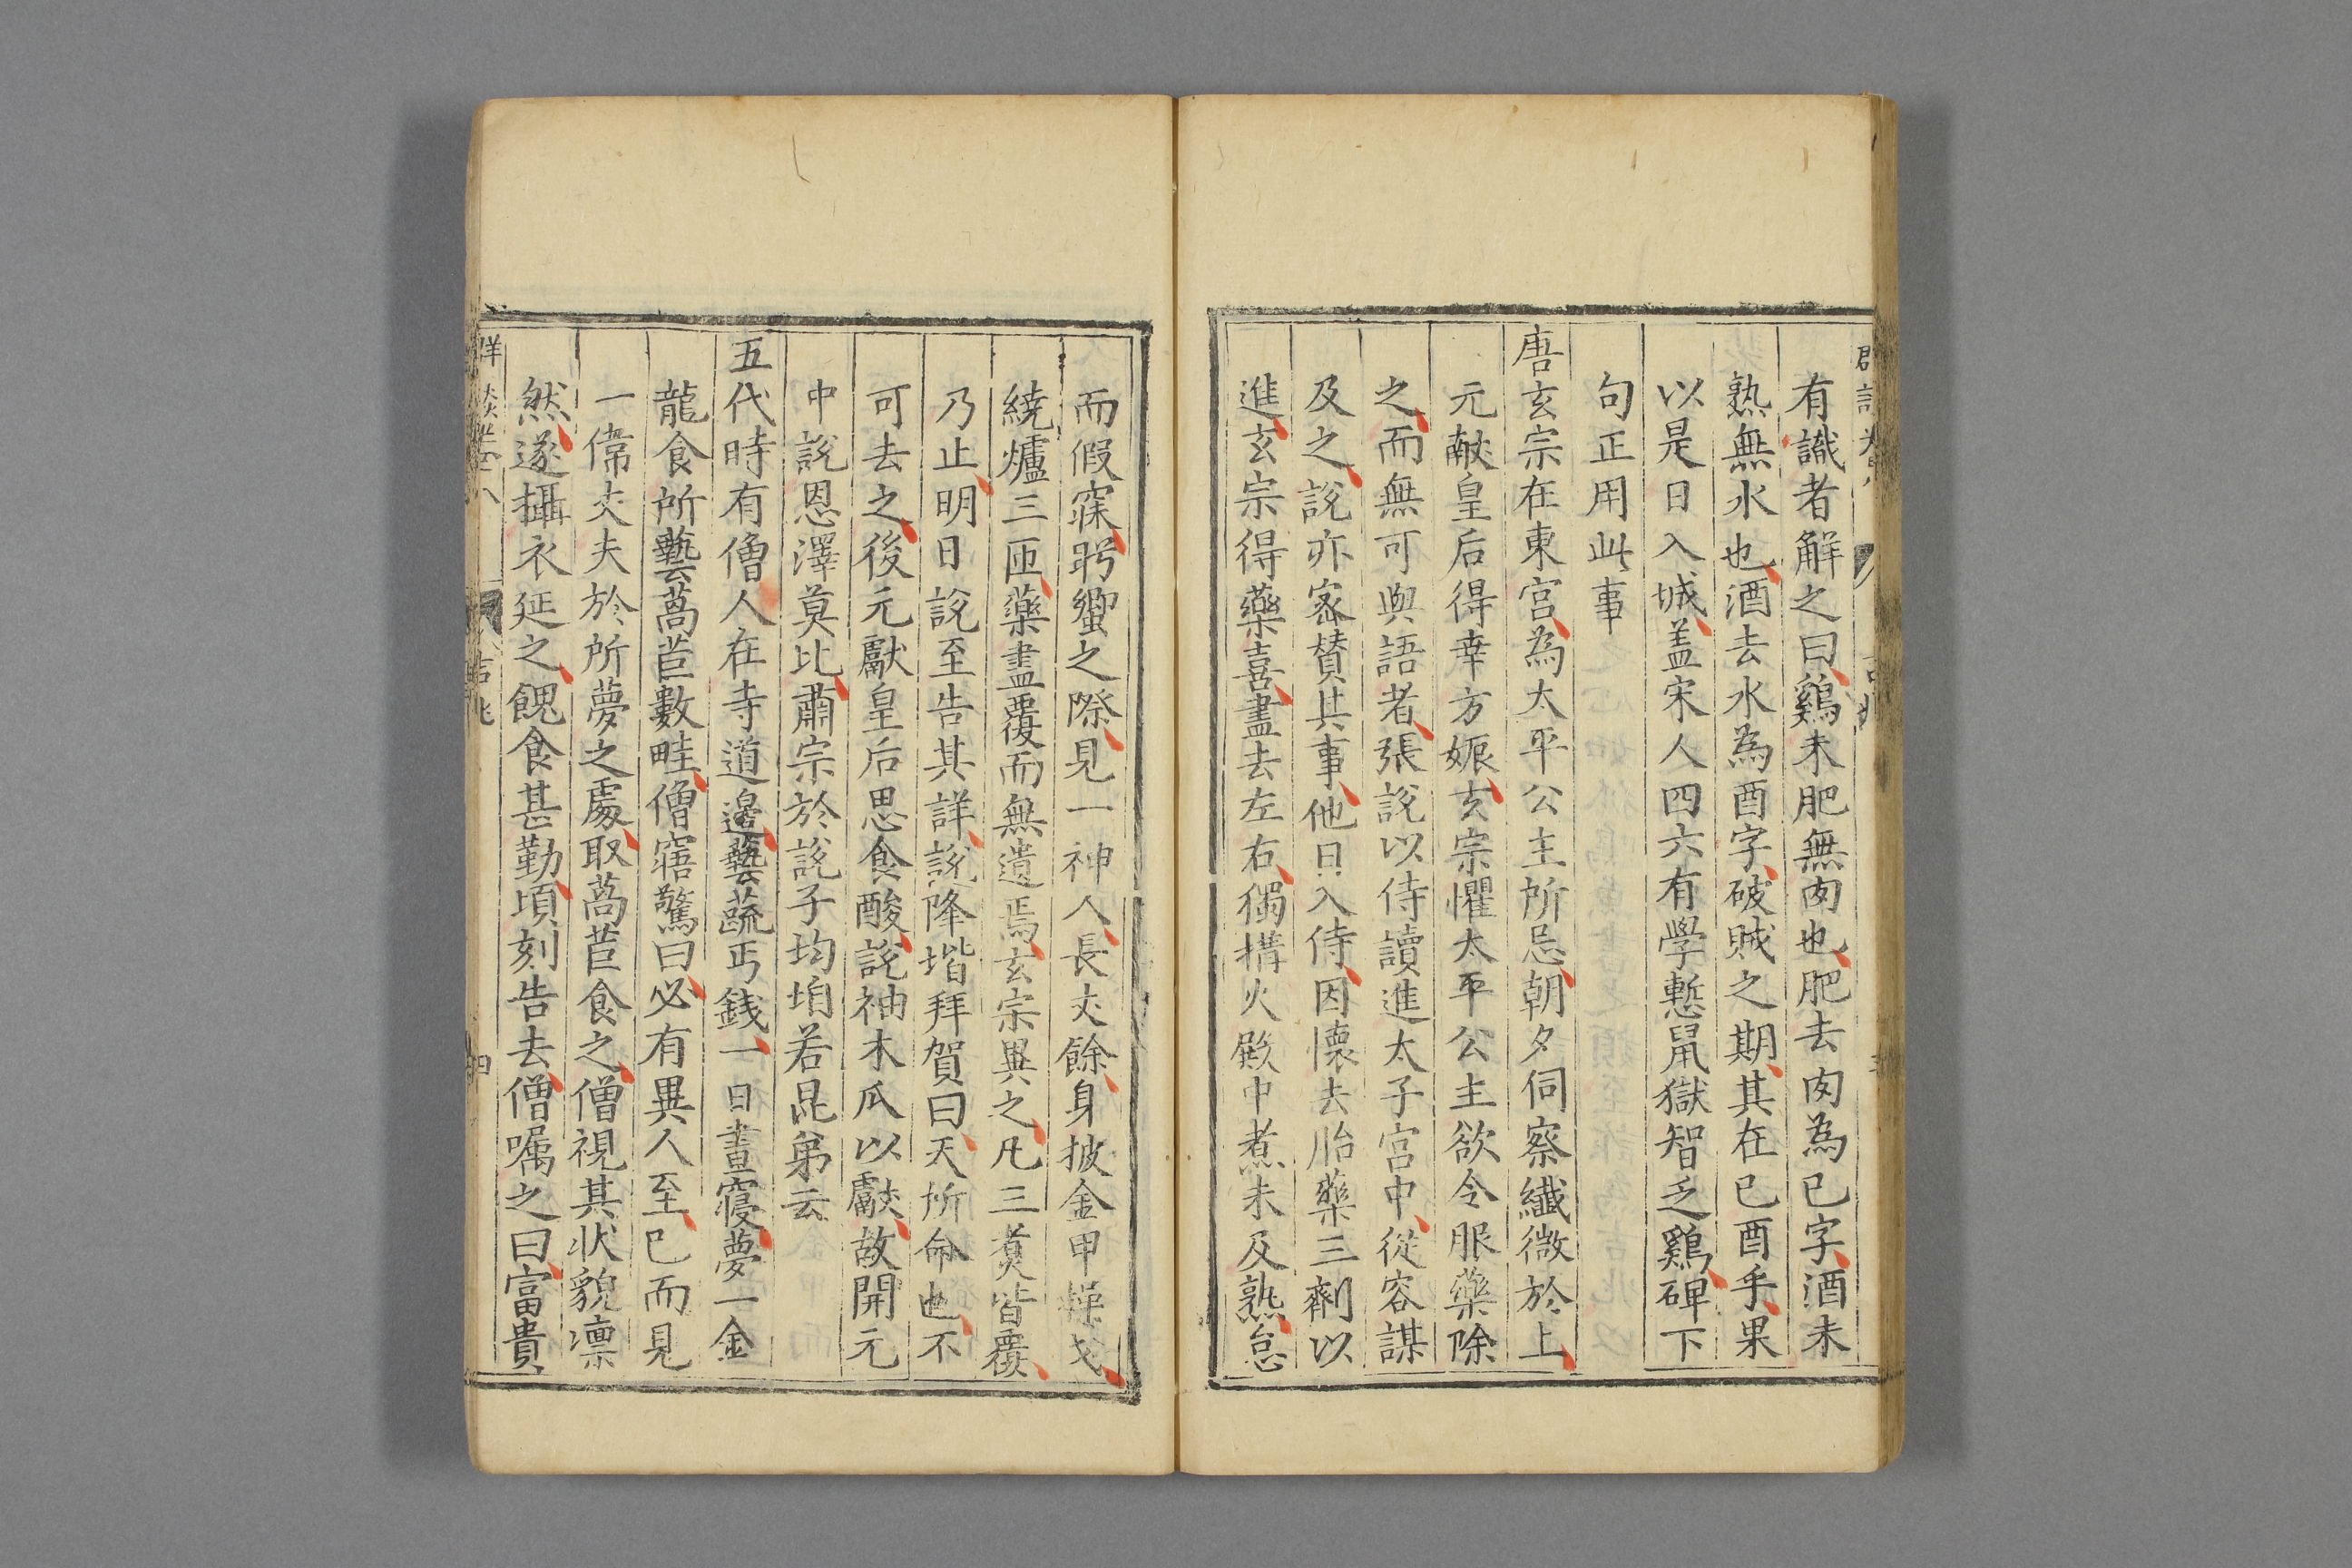 有識者解之曰鷄未肥無肉也肥去肉為巳字酒未
熟無水也酒去水為酉字破賊之期其在巳酉乎果
以是日入城盖宋人四六有學慙鼠獄智乏鷄碑下
句正用此事
唐玄宗在東宮為太平公主所忌朝夕伺察纖微於上
元獻皇后得幸方娠玄宗懼太平公主欲令服藥除
之而無可與語者張說以侍讀進太子宮中從容謀
及之說亦密賛其事他日入侍因懷去胎藥三劑以
進玄宗得藥喜盡去左右獨搆火殿中煮未及熟怠
而假寐肹蠁之際見一神人長丈餘身披金甲操戈
繞爐三匝藥盡覆而無遺焉玄宗異之凡三煑皆覆
乃止明日說至告其詳說降堦拜賀曰天所命也不
可去之後元獻皇后思食酸說袖木瓜以獻故開元
中說恩澤莫比肅宗於說子均垍若昆弟云
五代時有僧人在寺道邊藝蔬丐錢一日晝寢夢一金
龍食所藝萵苣數畦僧寤驚曰必有異人至已而見
一偉丈夫於所夢之處取萵苣食之僧視其状貌凛
然遂攝衣延之餽食甚勤頃刻告去僧嘱之曰富貴